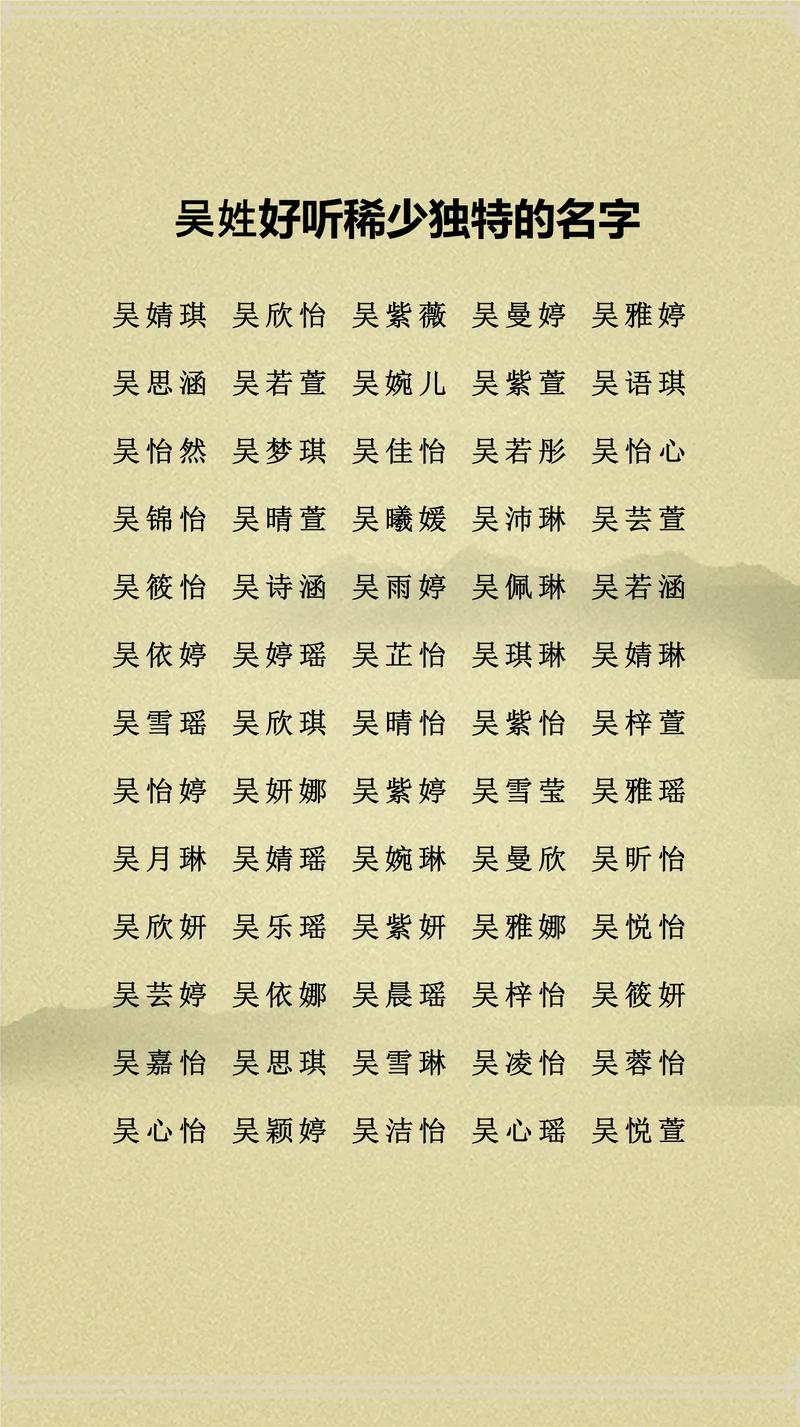 吴姓好听稀少独特的名字
吴婧琪 吴欣怡 吴紫薇 吴曼婷 吴雅婷
吴思涵 吴若萱 吴婉儿 吴紫萱 吴语琪
吴怡然 吴梦琪 吴佳怡 吴若彤 吴怡心
吴锦怡 吴晴萱 吴曦媛 吴沛琳 吴芸萱
吴筱怡 吴诗涵 吴雨婷 吴佩琳 吴若涵
吴依婷 吴婷瑶 吴芷怡 吴琪琳 吴婧琳
吴雪瑶 吴欣琪 吴晴怡 吴紫怡 吴梓萱
吴怡婷 吴妍娜 吴紫婷 吴雪莹 吴雅瑶
吴月琳 吴婧瑶 吴婉琳 吴曼欣 吴昕怡
吴欣妍 吴乐瑶 吴紫妍 吴雅娜 吴悦怡
吴芸婷 吴依娜 吴晨瑶 吴梓怡 吴筱妍
吴嘉怡 吴思琪 吴雪琳 吴凌怡 吴蓉怡
吴心怡 吴颖婷 吴洁怡 吴心瑶 吴悦萱